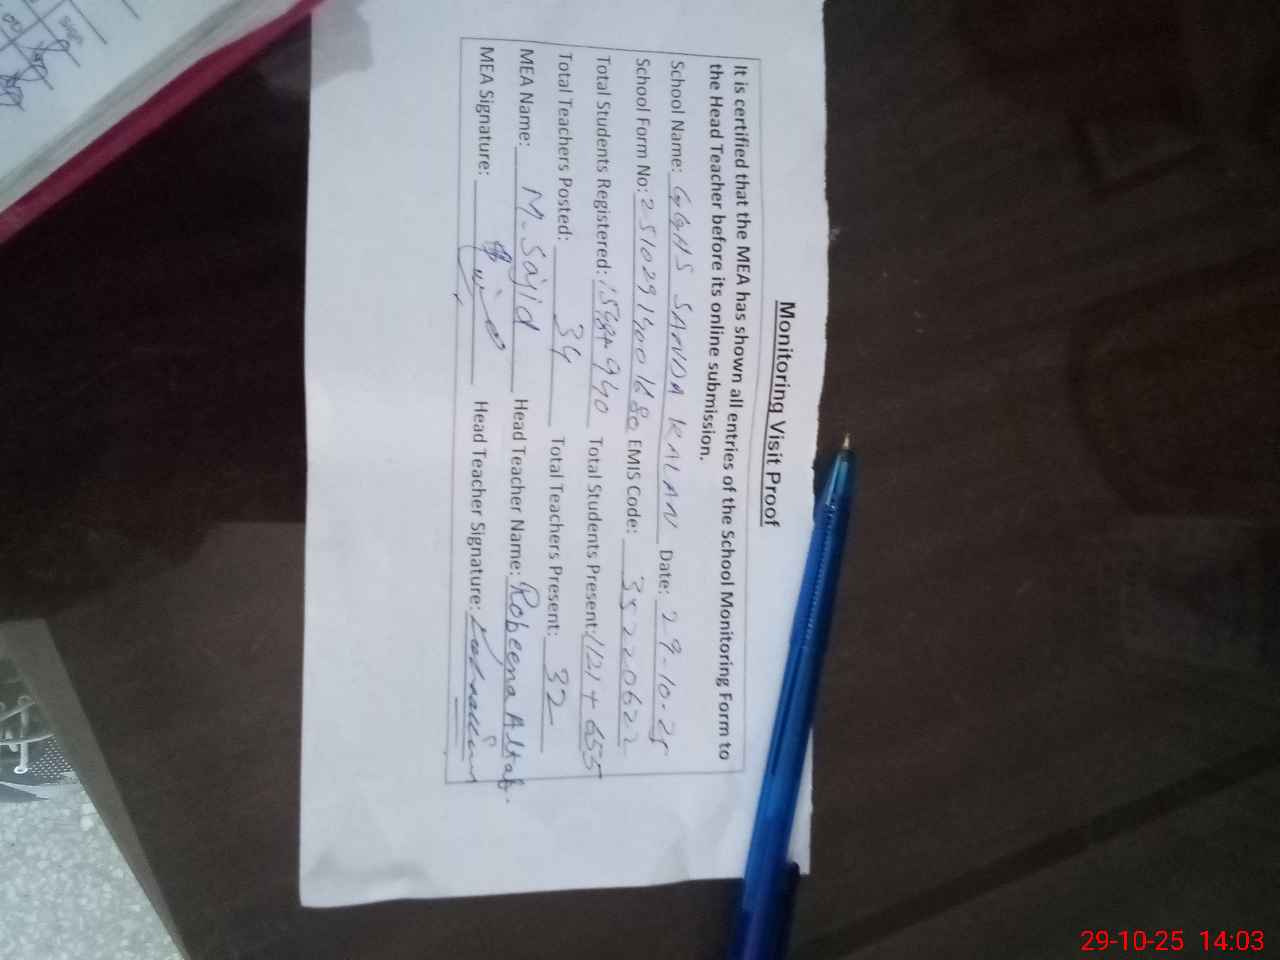 Monitoring Visit Proof
It is certified that the MEA has shown all entries of the School Monitoring Form to
the Head Teacher before its online submission.
School Name: GGHS SANDA KALAN Date: 29-10-25
School Form No: EMIS Code: 35220622
Total Students Registered: + 940 Total Students Present: 1121 + 655
Total Teachers Posted: 34 Total Teachers Present: 32
MEA Name: M. Sajid Head Teacher Name: Robeena Altaf.
MEA Signature: Head Teacher Signature:
29-10-25 14:03